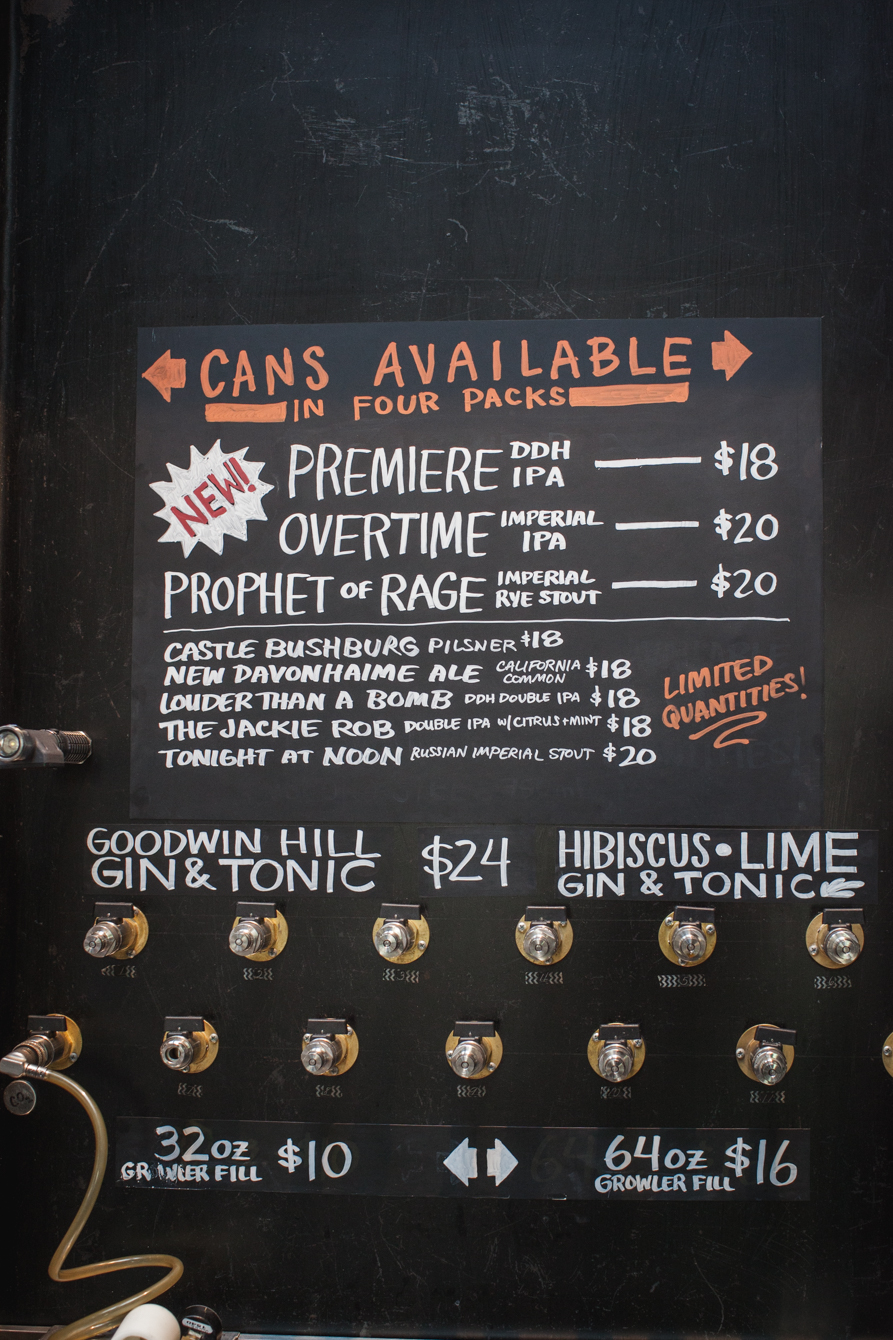 CANS AVAILABLE
IN FOUR PACKS
NEW!
PREMIERE DDH IPA $18
OVERTIME IMPERIAL IPA $20
PROPHET OF RAGE IMPERIAL RYE STOUT $20
CASTLE BUSHBURG PILSNER $18
NEW DAVONHAIME ALE CALIFORNIA COMMON $18
LOUDER THAN A BOMB DDH DOUBLE IPA $18
THE JACKIE ROB DOUBLE IPA W/CITRUS+MINT $18
TONIGHT AT NOON RUSSIAN IMPERIAL STOUT $20
LIMITED
QUANTITIES!
GOODWIN HILL
GIN & TONIC
$24
HIBISCUS • LIME
GIN & TONIC
32oz
GROWLER FILL
$10
64oz
GROWLER FILL
$16